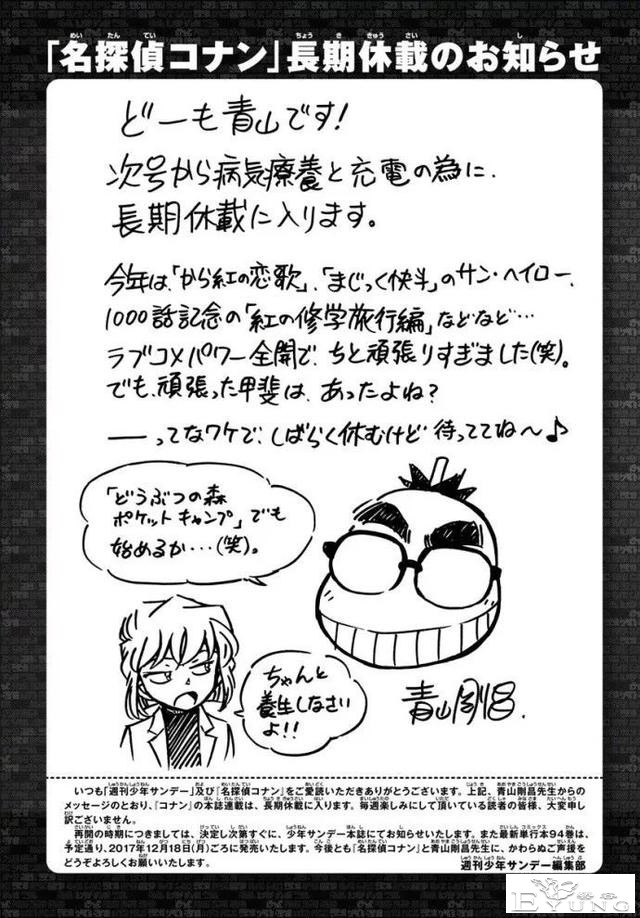 「名探偵コナン」長期休載のお知らせ
どーも青山です!
次号から病気療養と充電の為に、
長期休載に入ります。
今年は、「から紅の恋歌」、「まじっく快斗」のサン・ヘイロー、
1000話記念の「紅の修学旅行編」などなど…
ラブコメパワー全開で、ちと頑張りすぎました(笑)。
でも、頑張った甲斐は、あったよね?
——ってなワケで、しばらく休むけど 待っててね〜♪
「どうぶつの森
ポケットキャンプ」でも
始めるか…(笑)。
ちゃんと
養生しなさい
よ!!
青山剛昌.
いつも「週刊少年サンデー」及び『名探偵コナン』をご愛読いただきありがとうございます。上記、青山剛昌先生からの
メッセージのとおり、『コナン』の本誌連載は、長期休載に入ります。毎週楽しみにして頂いている読者の皆様、大変申し
訳ございません。
再開の時期につきましては、決定し次第すぐに、少年サンデー本誌にてお知らせいたします。また最新単行本94巻は、
予定通り、2017年12月18日(月)ごろに発売いたします。今後とも『名探偵コナン』と青山剛昌先生に、かわらぬご声援を
どうぞよろしくお願いいたします。
週刊少年サンデー編集部
EYUNG